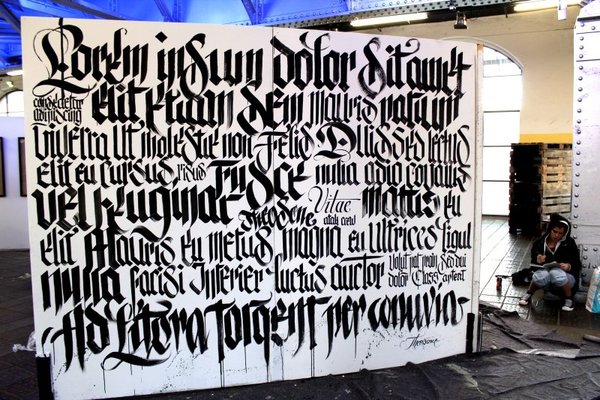 Lorem ipsum dolor sitamet
consectetur
adipiscing
elit etiam sem mauris rutrum
viverra ut molestie non Felis Duis sed lectus
elit eu cursus risus Fusce nulla odio convallis
vel feugiat theodene Vitae mattis eu
elit Mauris eu metus magna eu ultrices ligul
nulla facisi Inferier luctus auctor
dolor Class aptent
Ad Litora torqent per conuvia